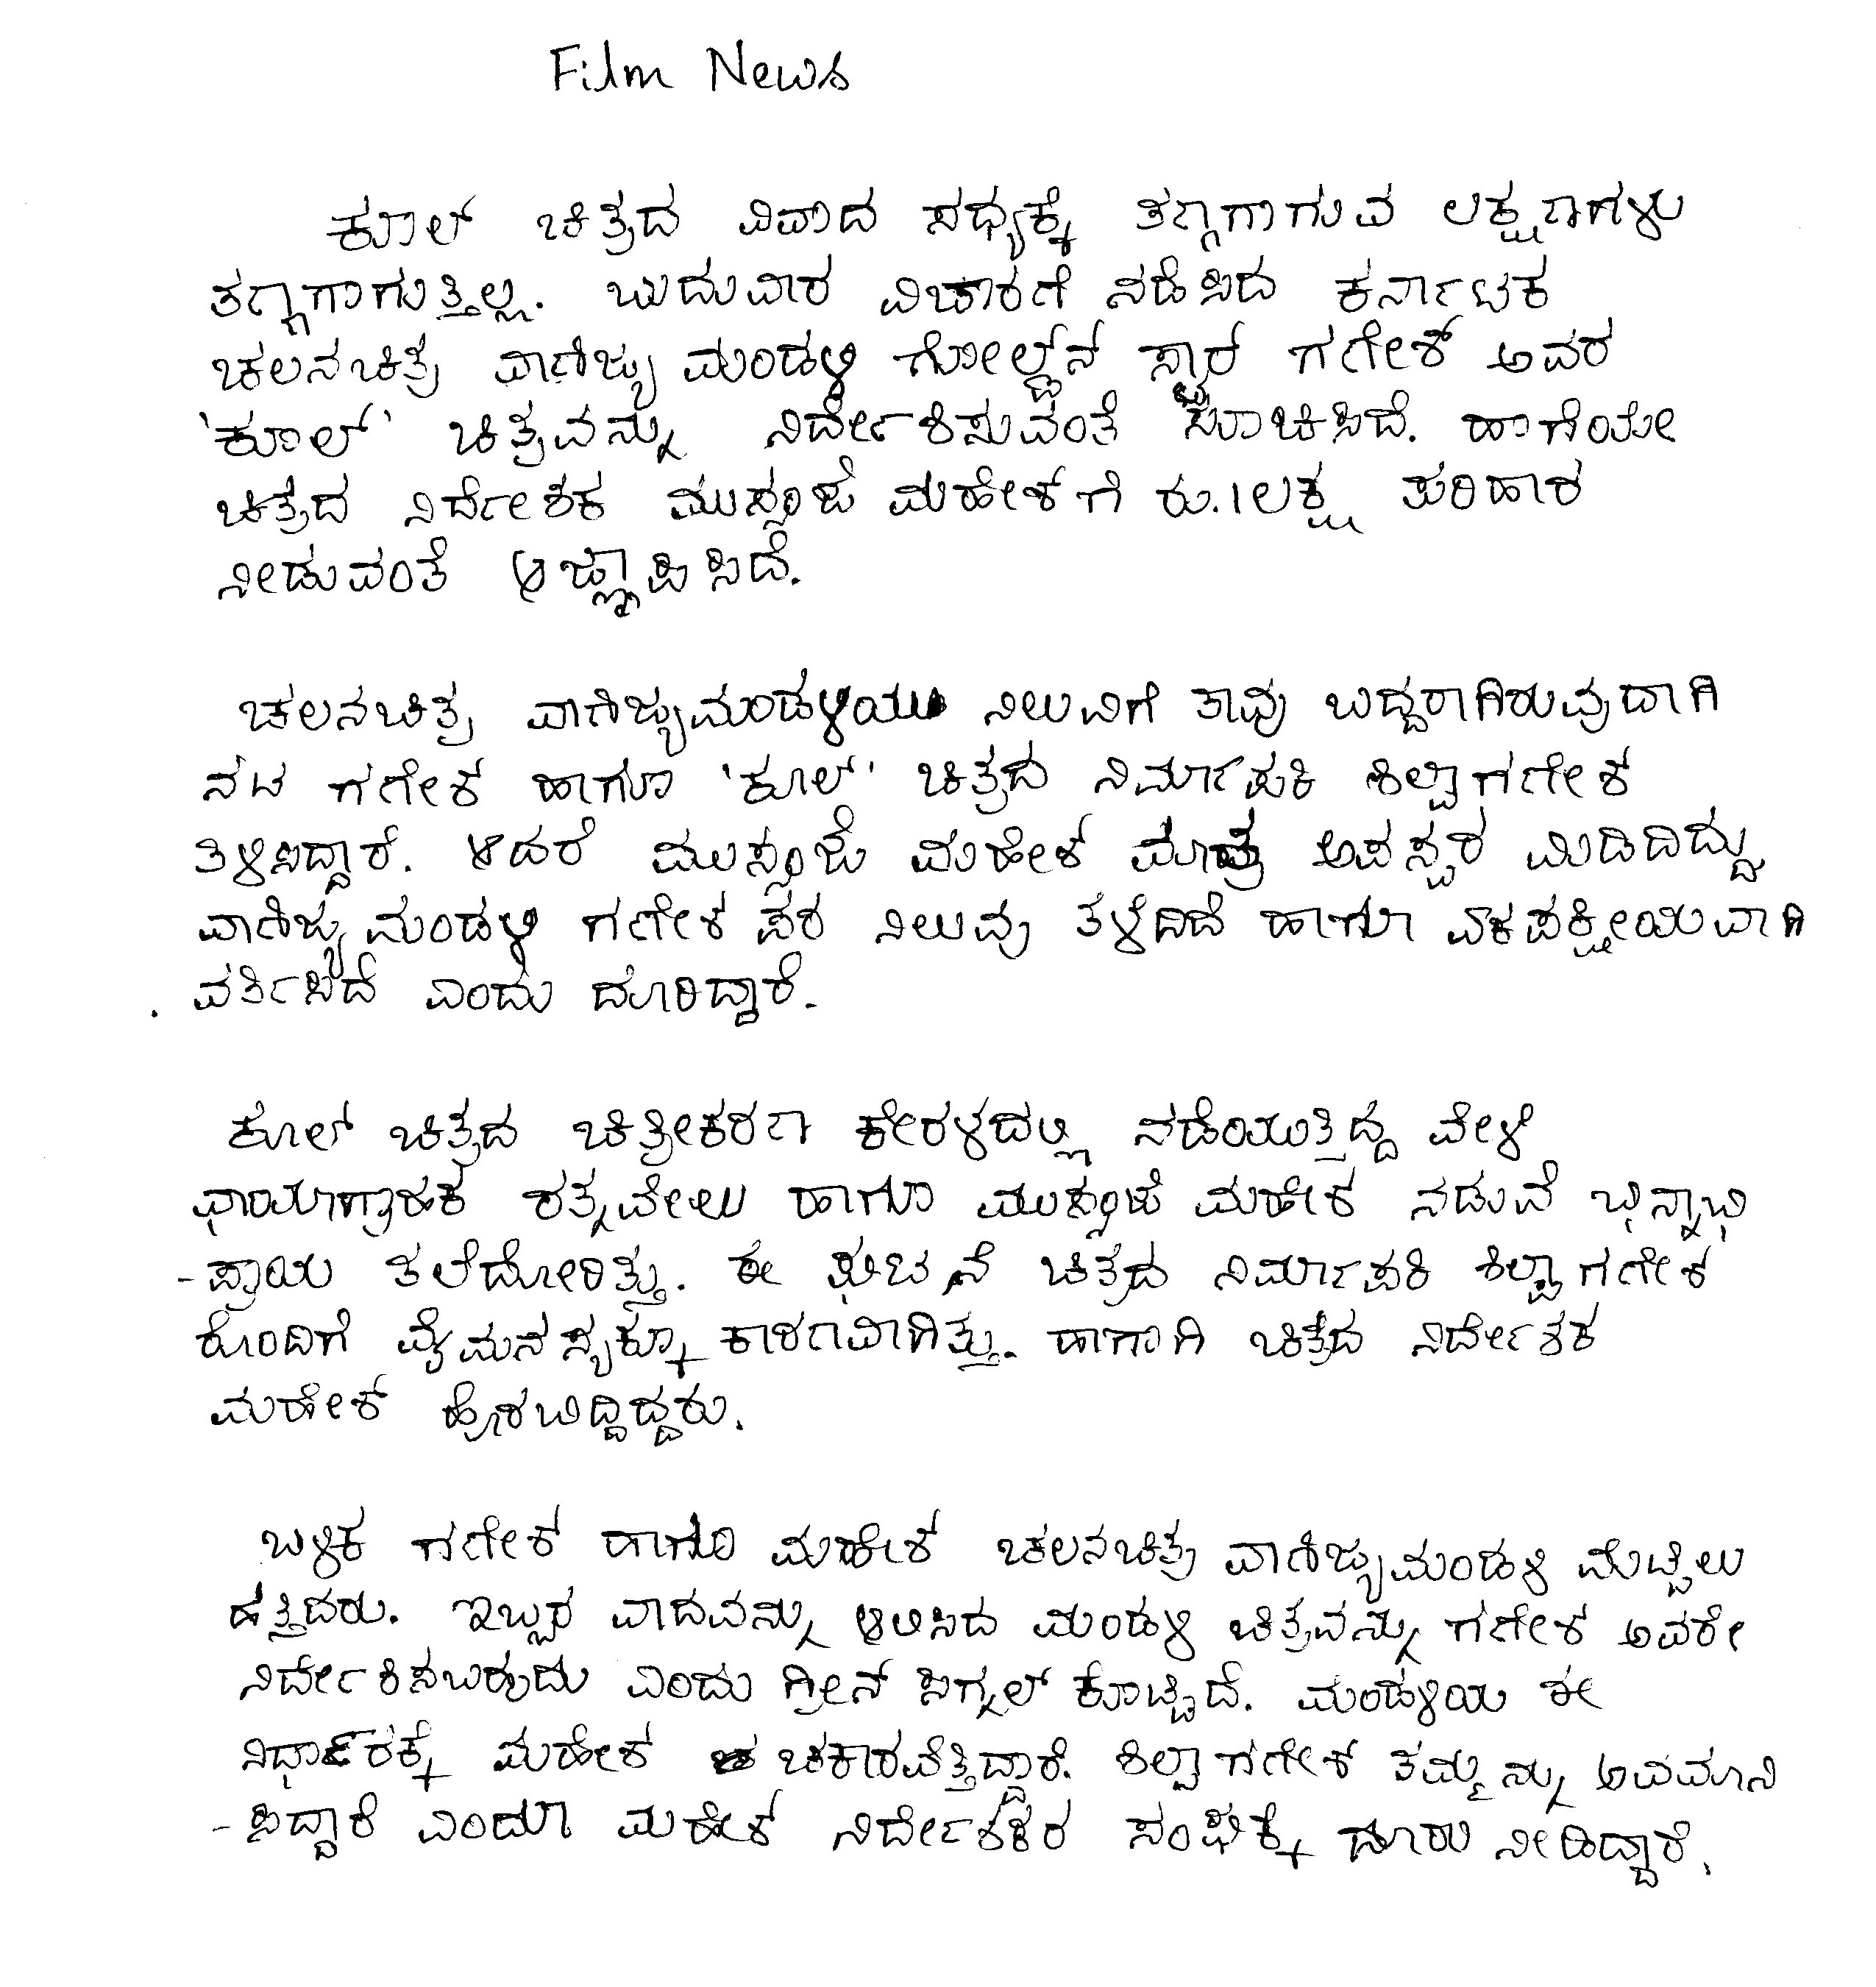 Film News
ಕೂಲ್ ಚಿತ್ರದ ವಿವಾದ ಸಧ್ಯಕ್ಕೆ ತಣ್ಣಗಾಗುವ ಲಕ್ಷಣಗಳು
ತಣ್ಣಗಾಗುತ್ತಿಲ್ಲ. ಬುದುವಾರ ವಿಚಾರಣೆ ನಡೆಸಿದ ಕರ್ನಾಟಕ
ಚಲನಚಿತ್ರ ವಾಣಿಜ್ಯ ಮಂಡಳಿ ಗೋಲ್ಡನ್ ಸ್ಟಾರ್ ಗಣೇಶ್ ಅವರ
'ಕೂಲ್' ಚಿತ್ರವನ್ನು ನಿರ್ದೇಶಿಸುವಂತೆ ಸೂಚಿಸಿದೆ. ಹಾಗೆಯೇ
ಚಿತ್ರದ ನಿರ್ದೇಶಕ ಮುಸ್ಸಂಜೆ ಮಹೇಶ್ ಗೆ ರು.1ಲಕ್ಷ ಪರಿಹಾರ
ನೀಡುವಂತೆ ಆಜ್ಞಾಪಿಸಿದೆ.
ಚಲನಚಿತ್ರ ವಾಣಿಜ್ಯಮಂಡಳಿಯ ನಿಲುವಿಗೆ ತಾವು ಬದ್ದರಾಗಿರುವುದಾಗಿ
ನಟ ಗಣೇಶ್ ಹಾಗೂ 'ಕೂಲ್' ಚಿತ್ರದ ನಿರ್ಮಾಪಕಿ ಶಿಲ್ಪಾಗಣೇಶ್
ತಿಳಿಸಿದ್ದಾರೆ. ಆದರೆ ಮುಸ್ಸಂಜೆ ಮಹೇಶ್ ಮಾತ್ರ ಅಪಸ್ವರ ಮಿಡಿದಿದ್ದು
ವಾಣಿಜ್ಯ ಮಂಡಳಿ ಗಣೇಶ ಪರ ನಿಲುವು ತಳೆದಿದೆ ಹಾಗೂ ಏಕಪಕ್ಷೀಯವಾಗಿ
ವರ್ತಿಸಿದೆ ಎಂದು ದೂರಿದ್ದಾರೆ.
ಕೂಲ್ ಚಿತ್ರದ ಚಿತ್ರೀಕರಣ ಕೇರಳದಲ್ಲಿ ನಡೆಯುತ್ತಿದ್ದ ವೇಳೆ
ಛಾಯಾಗ್ರಾಹಕ ರತ್ನವೇಲು ಹಾಗೂ ಮುಸ್ಸಂಜೆ ಮಹೇಶ ನಡುವೆ ಭಿನ್ನಾಭಿ
-ಪ್ರಾಯ ತಲೆದೋರಿತ್ತು. ಈ ಘಟನೆ ಚಿತ್ರದ ನಿರ್ಮಾಪಕಿ ಶಿಲ್ಪಾಗಣೇಶ
ರೊಂದಿಗೆ ವೈಮನಸ್ಯಕ್ಕೂ ಕಾರಣವಾಗಿತ್ತು. ಹಾಗಾಗಿ ಚಿತ್ರದ ನಿರ್ದೇಶಕ
ಮಹೇಶ್ ಹೊರಬಿದ್ದಿದ್ದರು.
ಬಳಿಕ ಗಣೇಶ್ ಹಾಗೂ ಮಹೇಶ್ ಚಲನಚಿತ್ರ ವಾಣಿಜ್ಯಮಂಡಳಿ ಮೆಟ್ಟಿಲು
ಹತ್ತಿದರು. ಇಬ್ಬರ ವಾದವನ್ನು ಆಲಿಸಿದ ಮಂಡಳಿ ಚಿತ್ರವನ್ನು ಗಣೇಶ್ ಅವರೇ
ನಿರ್ದೇಶಿಸಬಹುದು ಎಂದು ಗ್ರೀನ್ ಸಿಗ್ನಲ್ ಕೊಟ್ಟಿದೆ. ಮಂಡಳಿಯ ಈ
ನಿರ್ಧಾರಕ್ಕೆ ಮಹೇಶ್ ಚಕಾರವೆತ್ತಿದ್ದಾರೆ. ಶಿಲ್ಪಾಗಣೇಶ್ ತಮ್ಮನ್ನು ಅವಮಾನಿ
-ಸಿದ್ದಾರೆ ಎಂದೂ ಮಹೇಶ್ ನಿರ್ದೇಶಕರ ಸಂಘಕ್ಕೆ ದೂರು ನೀಡಿದ್ದಾರೆ.